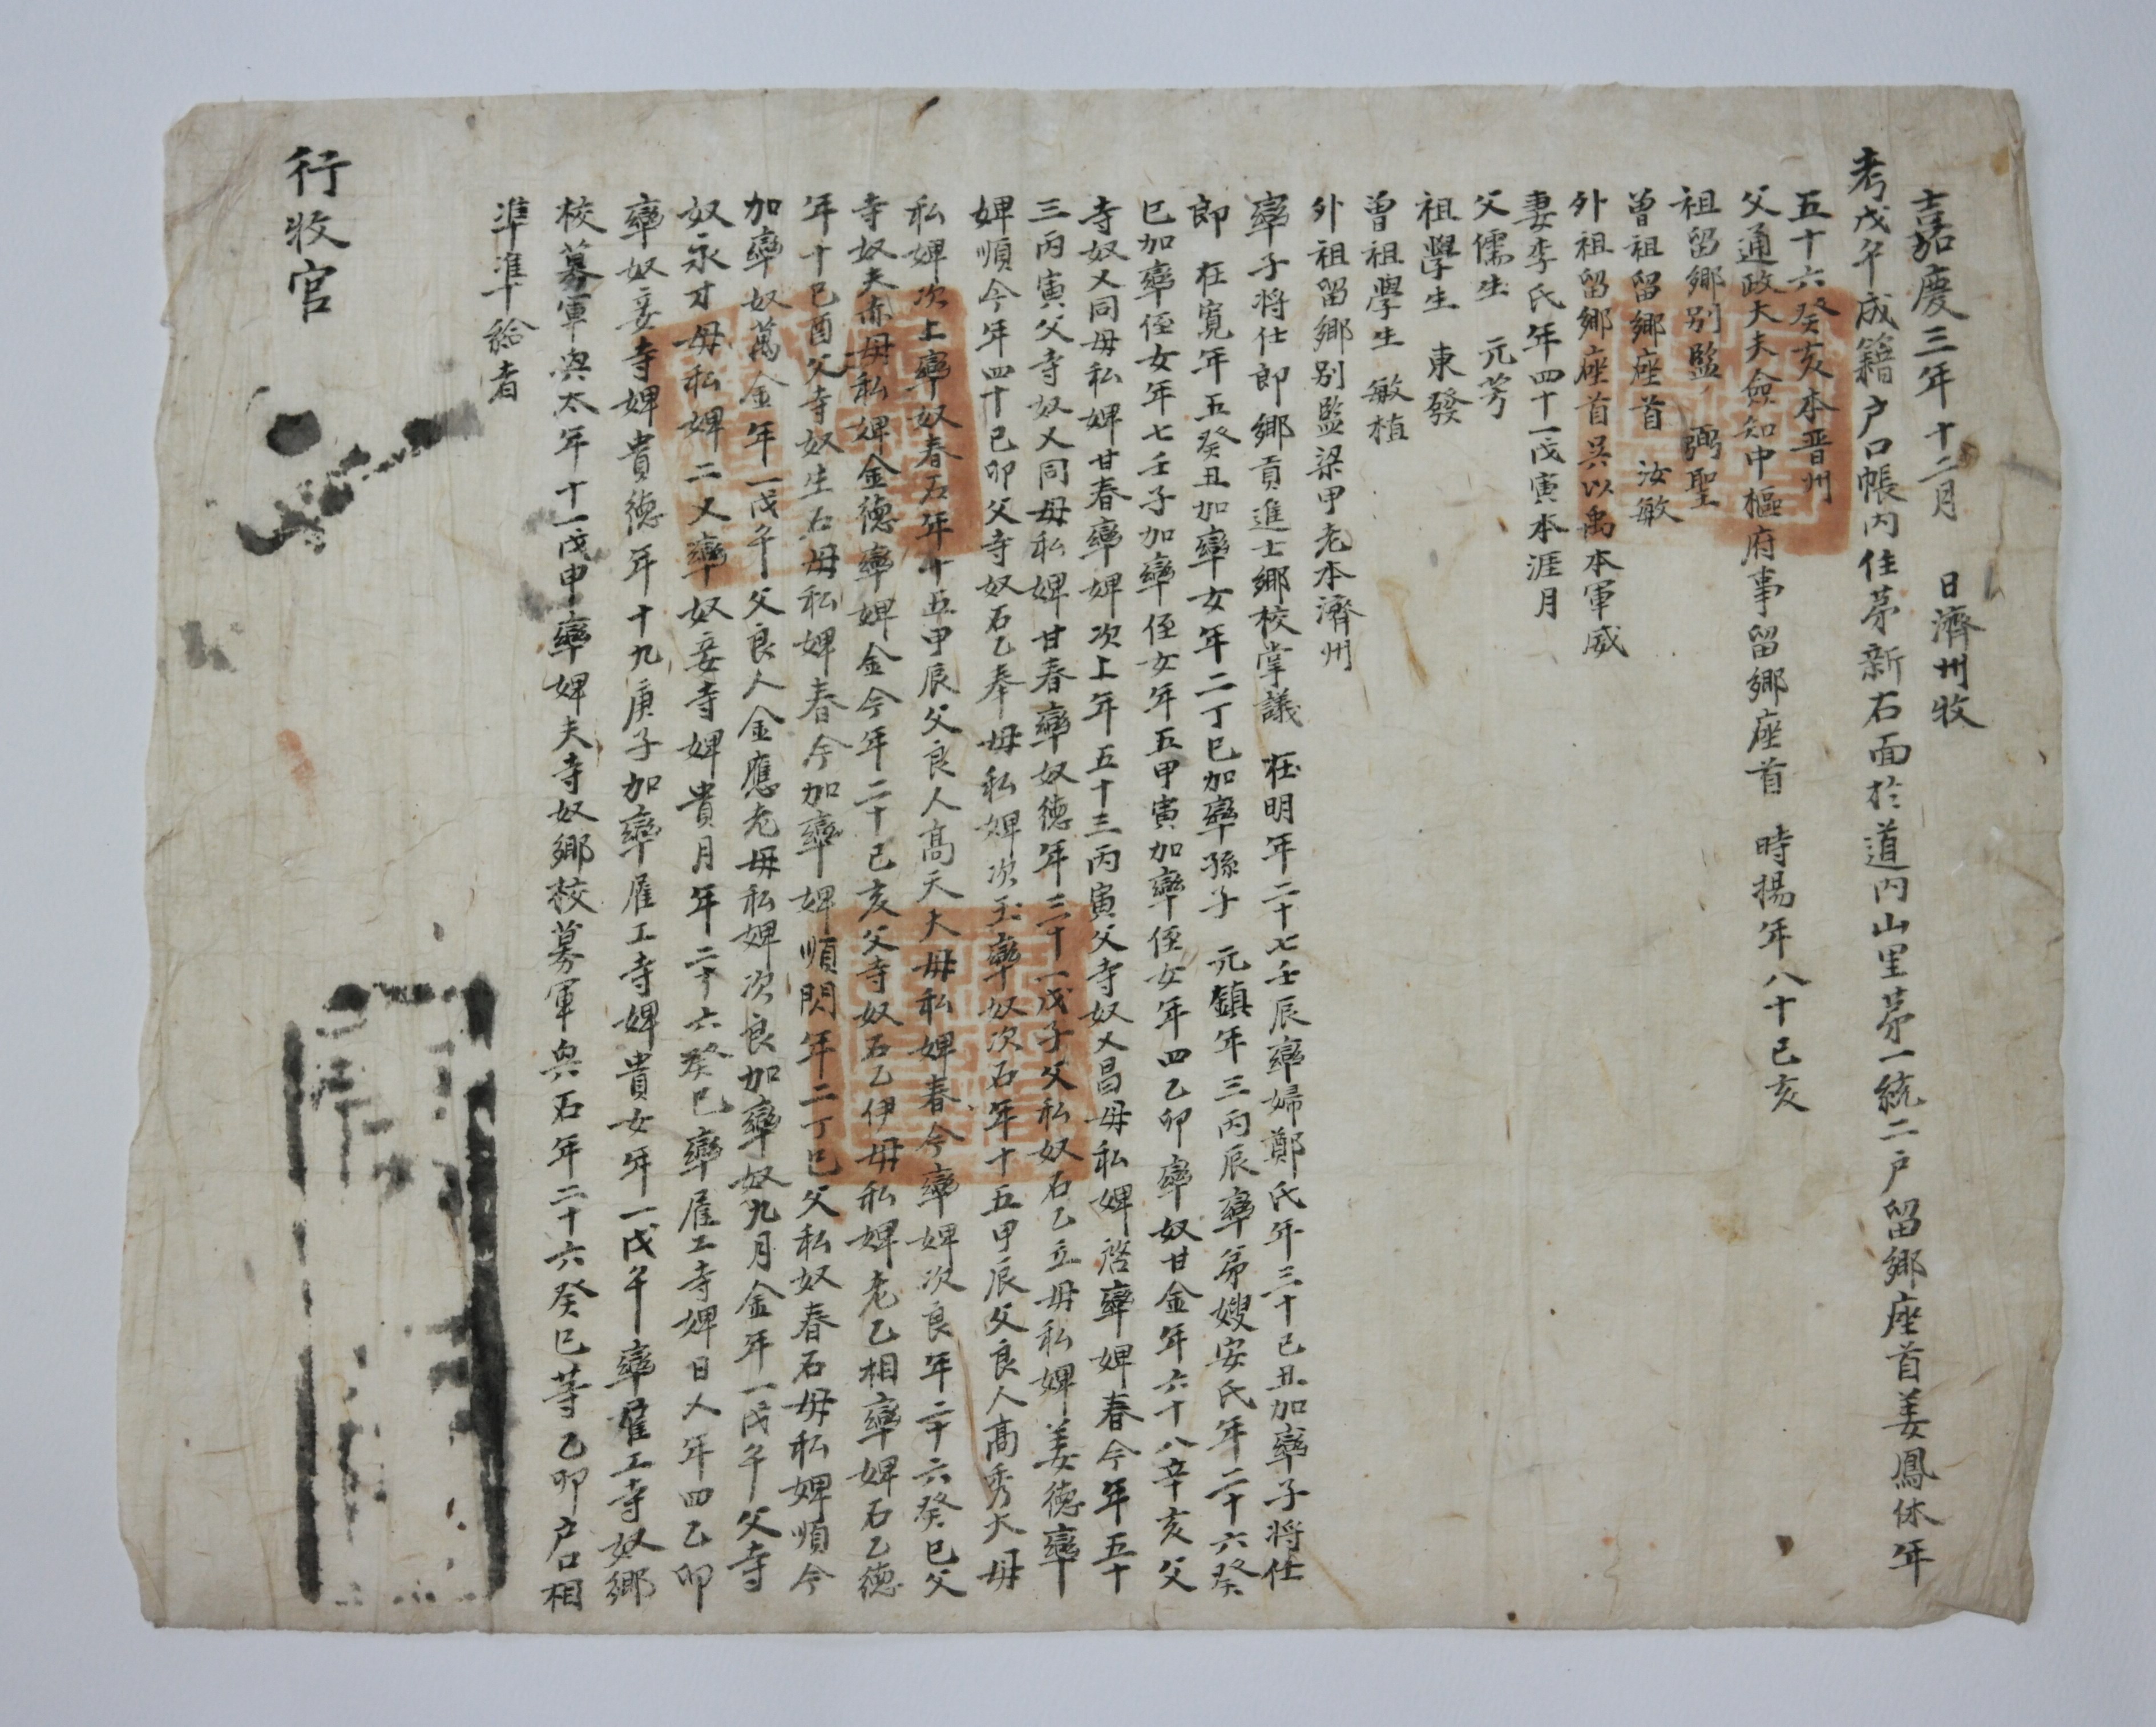 嘉慶三年十二月　日濟州牧
考戊午成籍户口帳內住苐新右面於道內山里苐一統二户留鄉座首姜鳳休年
五十六癸亥本晋州
父通政大夫僉知中樞府事留鄉座首　時揚年八十己亥
祖留鄉別監　弼聖
曽祖留鄉座首　汝敏
外祖留鄉座首吴以禹本軍威
妻李氏年四十一戊寅本涯月
父儒生　元芳
祖學生　東發
曽祖學生　敏植
外祖留鄉別監梁甲老本濟州
率子將仕郎鄉貢進士鄉校掌議　在明年二十七壬辰率婦鄭氏年三十己丑加率子將仕
郎　在寬年五癸丑加率女年二丁巳加率孫子　元鎮年三丙辰率弟嫂安氏年二十六癸
巳加率侄女年七壬子加率侄女年五甲寅加率侄女年四乙卯率奴甘金年六十八辛亥父
寺奴乂同母私婢甘春率婢次上年五十三丙寅父寺奴乂昌母私婢　率婢春今年五十
三丙寅父寺奴乂同母私婢甘春率奴德年三十一戊子父私奴石乙立母私婢姜德率
婢順今年四十己卯父寺奴石乙奉母私婢次玉率奴次石年十五甲辰父良人高秀大母
私婢次上率奴春石年十五甲辰父良人高天大母私婢春今率婢次良年二十六癸巳父
寺奴夫赤母私婢金德率婢金今年二十己亥父寺奴石乙伊母私婢老乙相率婢石乙德
年十己酉父寺奴生石母私婢春今加率婢順閃年二丁巳父私奴春石母私婢順今
加率奴萬金年一戊午父良人金應老母私婢次良加率奴九月金年一戊午父寺
奴永才母私婢二乂率奴妾寺婢貴月年二十六癸巳率雇工寺婢日人年四乙卯
率奴妾寺婢貴德年十九庚子加率雇工寺婢貴女年一戊午率雇工寺奴鄉
校募軍與太年十一戊申率婢夫寺奴鄉校募軍與石年二十六癸巳等乙卯户口相
準准給者
行牧官